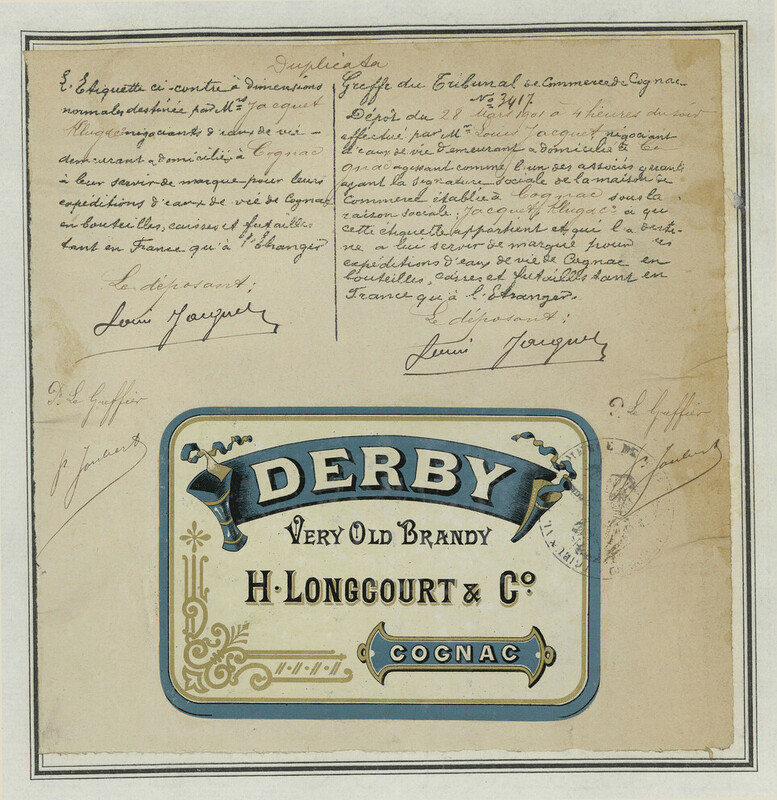 Duplicata
L'Etiquette ci-contre à dimensions
normales destinée par Mrs Jacquet
Klug & Cie négociants d'eaux de vie
demeurant & domiciliés à Cognac
à leur servir de marque pour leurs
expéditions d'eaux de vie de Cognac
en bouteilles, caisses et futailles
tant en France qu'à l'Etranger
Le déposant:
Louis Jacquet
Greffe du Tribunal de Commerce de Cognac
No 3417
Dépôt du 28 Mars 1901 à 4 heures du soir
effectué par Mr Louis Jacquet négociant
d'eaux de vie demeurant & domicilié à Co
gnac agissant comme l'un des associés gérants
ayant la signature sociale de la maison de
Commerce établie à Cognac sous la
raison sociale: Jacquet, Klug & Cie à qui
cette étiquette appartient et qui l'a desti-
né a leur servir de marque pour les
expéditions d'eaux de vie de Cognac en
bouteilles, caisses et futailles tant en
France qu'à l'Etranger.
Le déposant:
Louis Jacquet
P. Le Greffier
p. Joubert
P. Le Greffier
p. Joubert
DERBY
VERY OLD BRANDY
H. LONGCOURT & Co.
COGNAC